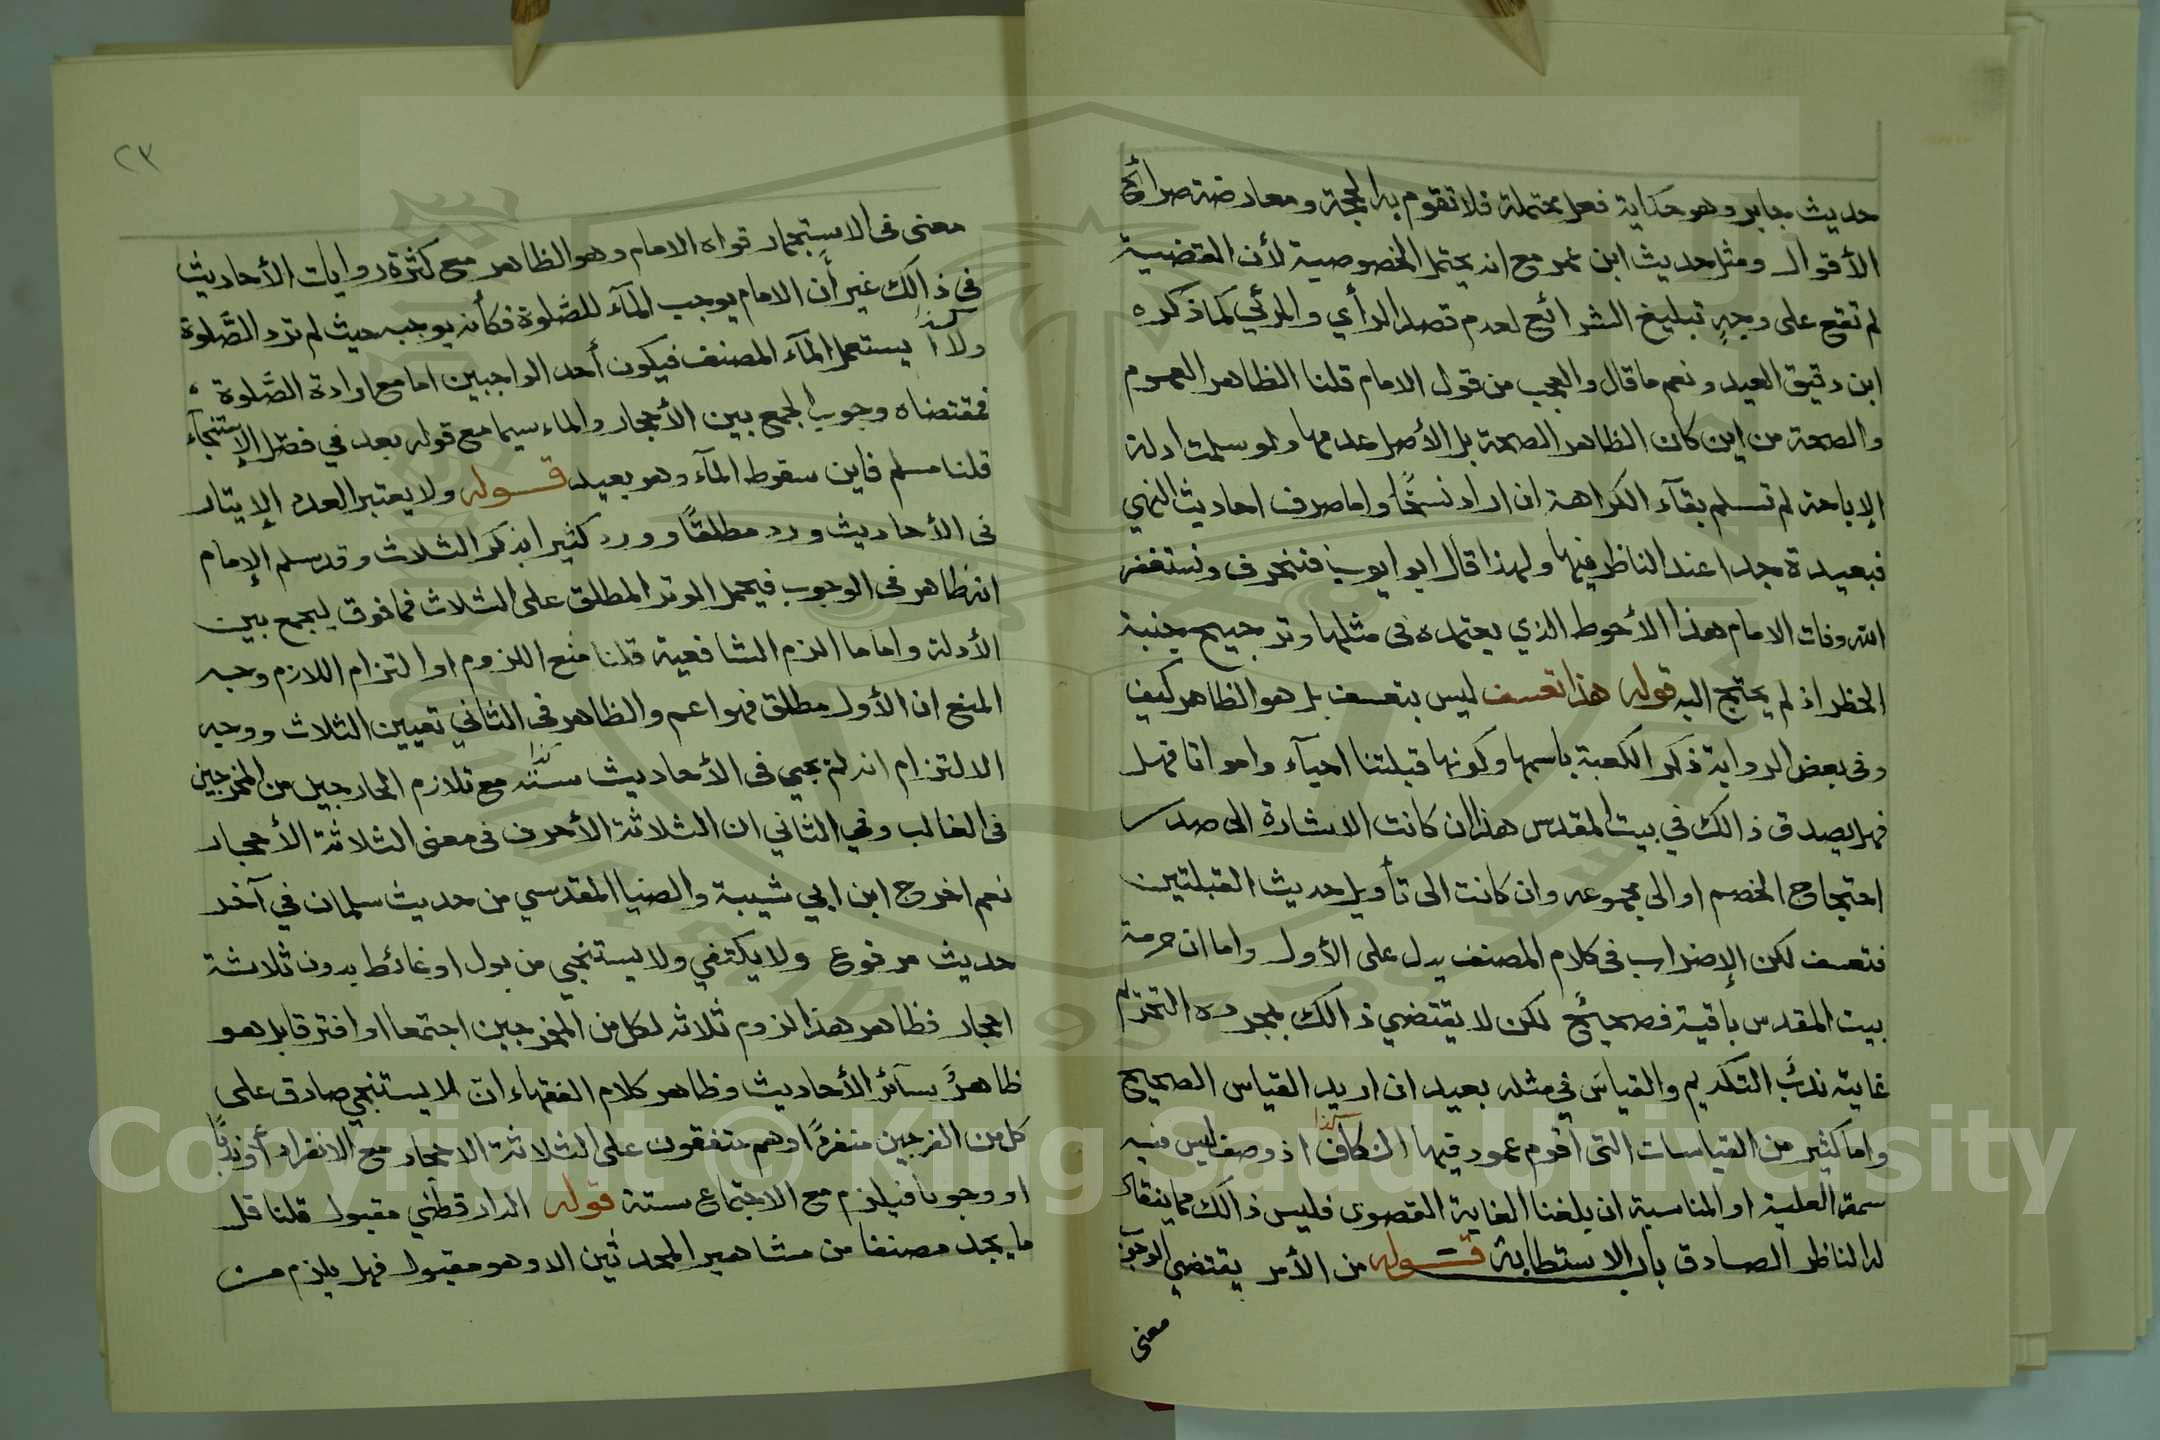 حديث جابر وهو حكاية فعل محتملة فلا تقوم به الحجة ومعارضة صرائح
الأقوال ومثل حديث ابن عمر مع انه يحتمل الخصوصية لأن القضية
لم تقع على وجهٍ تبليغ الشرائع لعدم قصد الرأي والمرئي كما ذكره
ابن دقيق العيد ونعم ما قال والعجب من قول الامام قلنا الظاهر العموم
والصحة من اين كان الظاهر الصحة بل الأصل عدمها ولو سلمت ادلة
الإباحة لم تسلم بقآء الكراهة ان اراد نسخًا واما صرف احاديث النهي
فبعيدة جدا عند الناظر فيها ولهذا قال ابو ايوب فننحرف ونستغفر
الله وفات الامام هذا الأحوط الذي يعتمده فى مثلها وترجيح جنبة
الحظر اذ لم يحتج اليه قوله هذا تعسف ليس بتعسف بل هو الظاهر كيف
وفى بعض الرواية ذكر الكعبة باسمها وكونها قبلتنا احيآء وامواتا فهل
فهل يصدق ذالك في بيت المقدس هذا ان كانت الاشارة الى صدر
احتجاج الخصم او الى مجموعه وان كانت الى تأويل حديث القبلتين
فتعسف لكن الإضراب فى كلام المصنف يدل على الأول واما ان حرمة
بيت المقدس باقية فصحيح لكن لا يقتضي ذالك بمجرده التحريم
غايته ندب التكريم والقياس في مثله بعيد ان اريد القياس الصحيح
واما كثير من القياسات التى اقوم عمود فيها الكاف كذا اذ وصف ليس فيه
سمة العلية او المناسبة ان بلغنا الغاية القصوى فليس ذالك مما ينقاد
له الناظر الصادق باب الاستطابة قوله من الأمر يقتضي الوجوب
معنى
٢٣
معنى فى الاستجمار قواه الامام وهو الظاهر مع كثرة روايات الأحاديث
فى ذالك غير أن الامام يوجب المآء للصَّلوة فكأنه يوجبه حيث لم ترد الصَّلوة
ولاا كذا يستعمل المآء المصنف فيكون أحد الواجبين اما مع ارادة الصَّلوة
فمقتضاه وجوب الجمع بين الأحجار والماء سيما مع قوله بعد في فصل الإستنجآء
قلنا مسلم فاين سقوط المآء وهو بعيد قوله ولا يعتبر العدد الإيتار
فى الأحاديث ورد مطلقًا وورد كثيرا بذكر الثلاث وقد سلم الإمام
انه ظاهر فى الوجوب فيحمل الوتر المطلق على الثلاث فما فوق ليجمع بين
الأدلة واما ما الزم الشافعية قلنا منع اللزوم او التزام اللازم وجه
المنع ان الأول مطلق فهو اعم والظاهر فى الثاني تعيين الثلاث ووجه
الالتزام انه لم يجي فى الأحاديث سننه كذا مع تلازم الخارجين من المخرجين
فى الغالب وفي الثاني ان الثلاثة الأحرف فى معنى الثلاثة الأحجار
نعم اخرج ابن ابي شيبة والضيا المقدسي من حديث سلمان في آخر
حديث مرفوع ولا يكتفي ولا يستنجي من بول او غائط بدون ثلاثة
احجار فظاهر هذا لزوم ثلاثه لكل من المخرجين اجتمعا او افترقا بل هو
ظاهرُ سآئر الأحاديث وظاهر كلام الفقهاء اذ لا يستنجي صادق على
كل من الفرجين منفردًا وهم متفقون على الثلاثة الاحجار مع الانفراد أو ندبًا
او وجوبا فيلزم مع الاجتماع ستة قوله الدارقطني مقبول قلنا قل
ما يجد مصنفا من مشاهير المحدثين الا وهو مقبول فهل يلزم من
Copyright © King Saud University